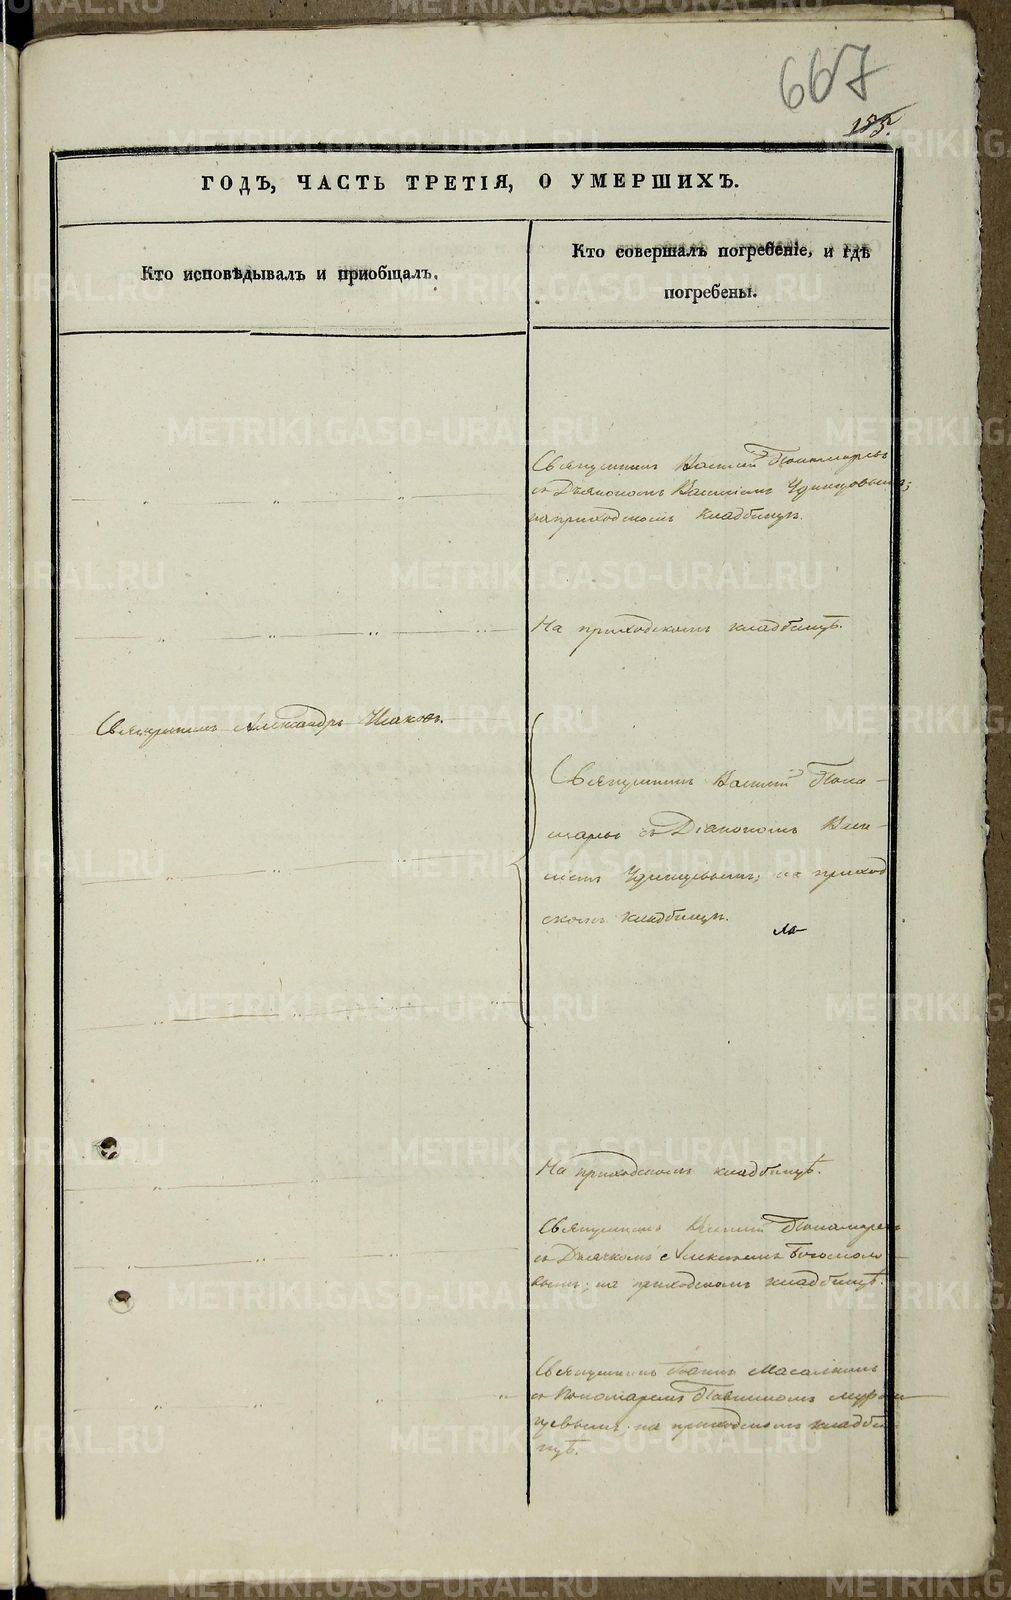 667
155.
ГОДЪ, ЧАСТЬ ТРЕТІЯ, О УМЕРШИХЪ.
Кто исповѣдывалъ и приобщалъ.
Кто совершалъ погребеніе, и гдѣ
погребены.
Священникъ Василій Пономаревъ
съ Дьякономъ Василіемъ Удинцовымъ;
на приходскомъ кладбищѣ.
На приходскомъ кладбищѣ.
Священникъ Александръ
Священникъ Василій Поно-
маревъ съ Діакономъ Васи-
ліемъ Удинцовымъ; на приход
скомъ кладбищѣ.
На приходскомъ кладбищѣ.
Священникъ Василій Пономаревъ
съ Дьячкомъ
на приходскомъ кладбищѣ.
Священникъ
съ Пономаремъ
на приходскомъ кладби
щѣ.
METRIKI.GASO-URAL.RU